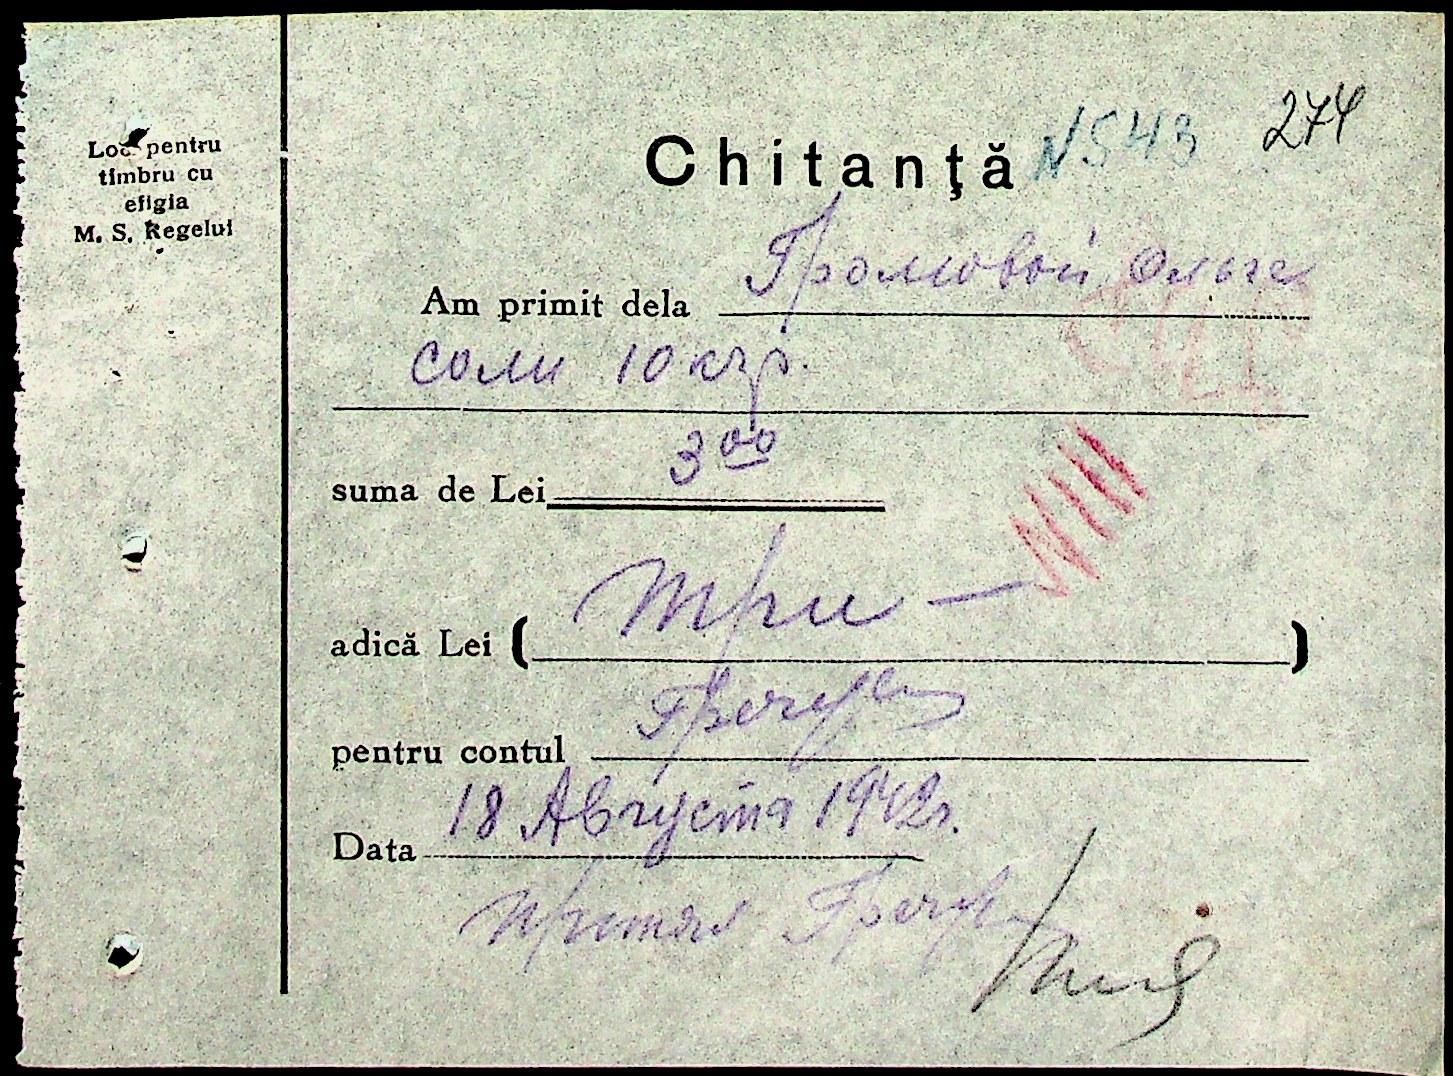 Loc pentru
timbru cu
efigia
M. S. Regelui
274
Chitanţă N 543
Am primit dela Громовой Ольге
соли 10 кгр.
suma de Lei 3 00
adică Lei ( Три — )
pentru contul
Data 18 Августа 1942 г.
Принял